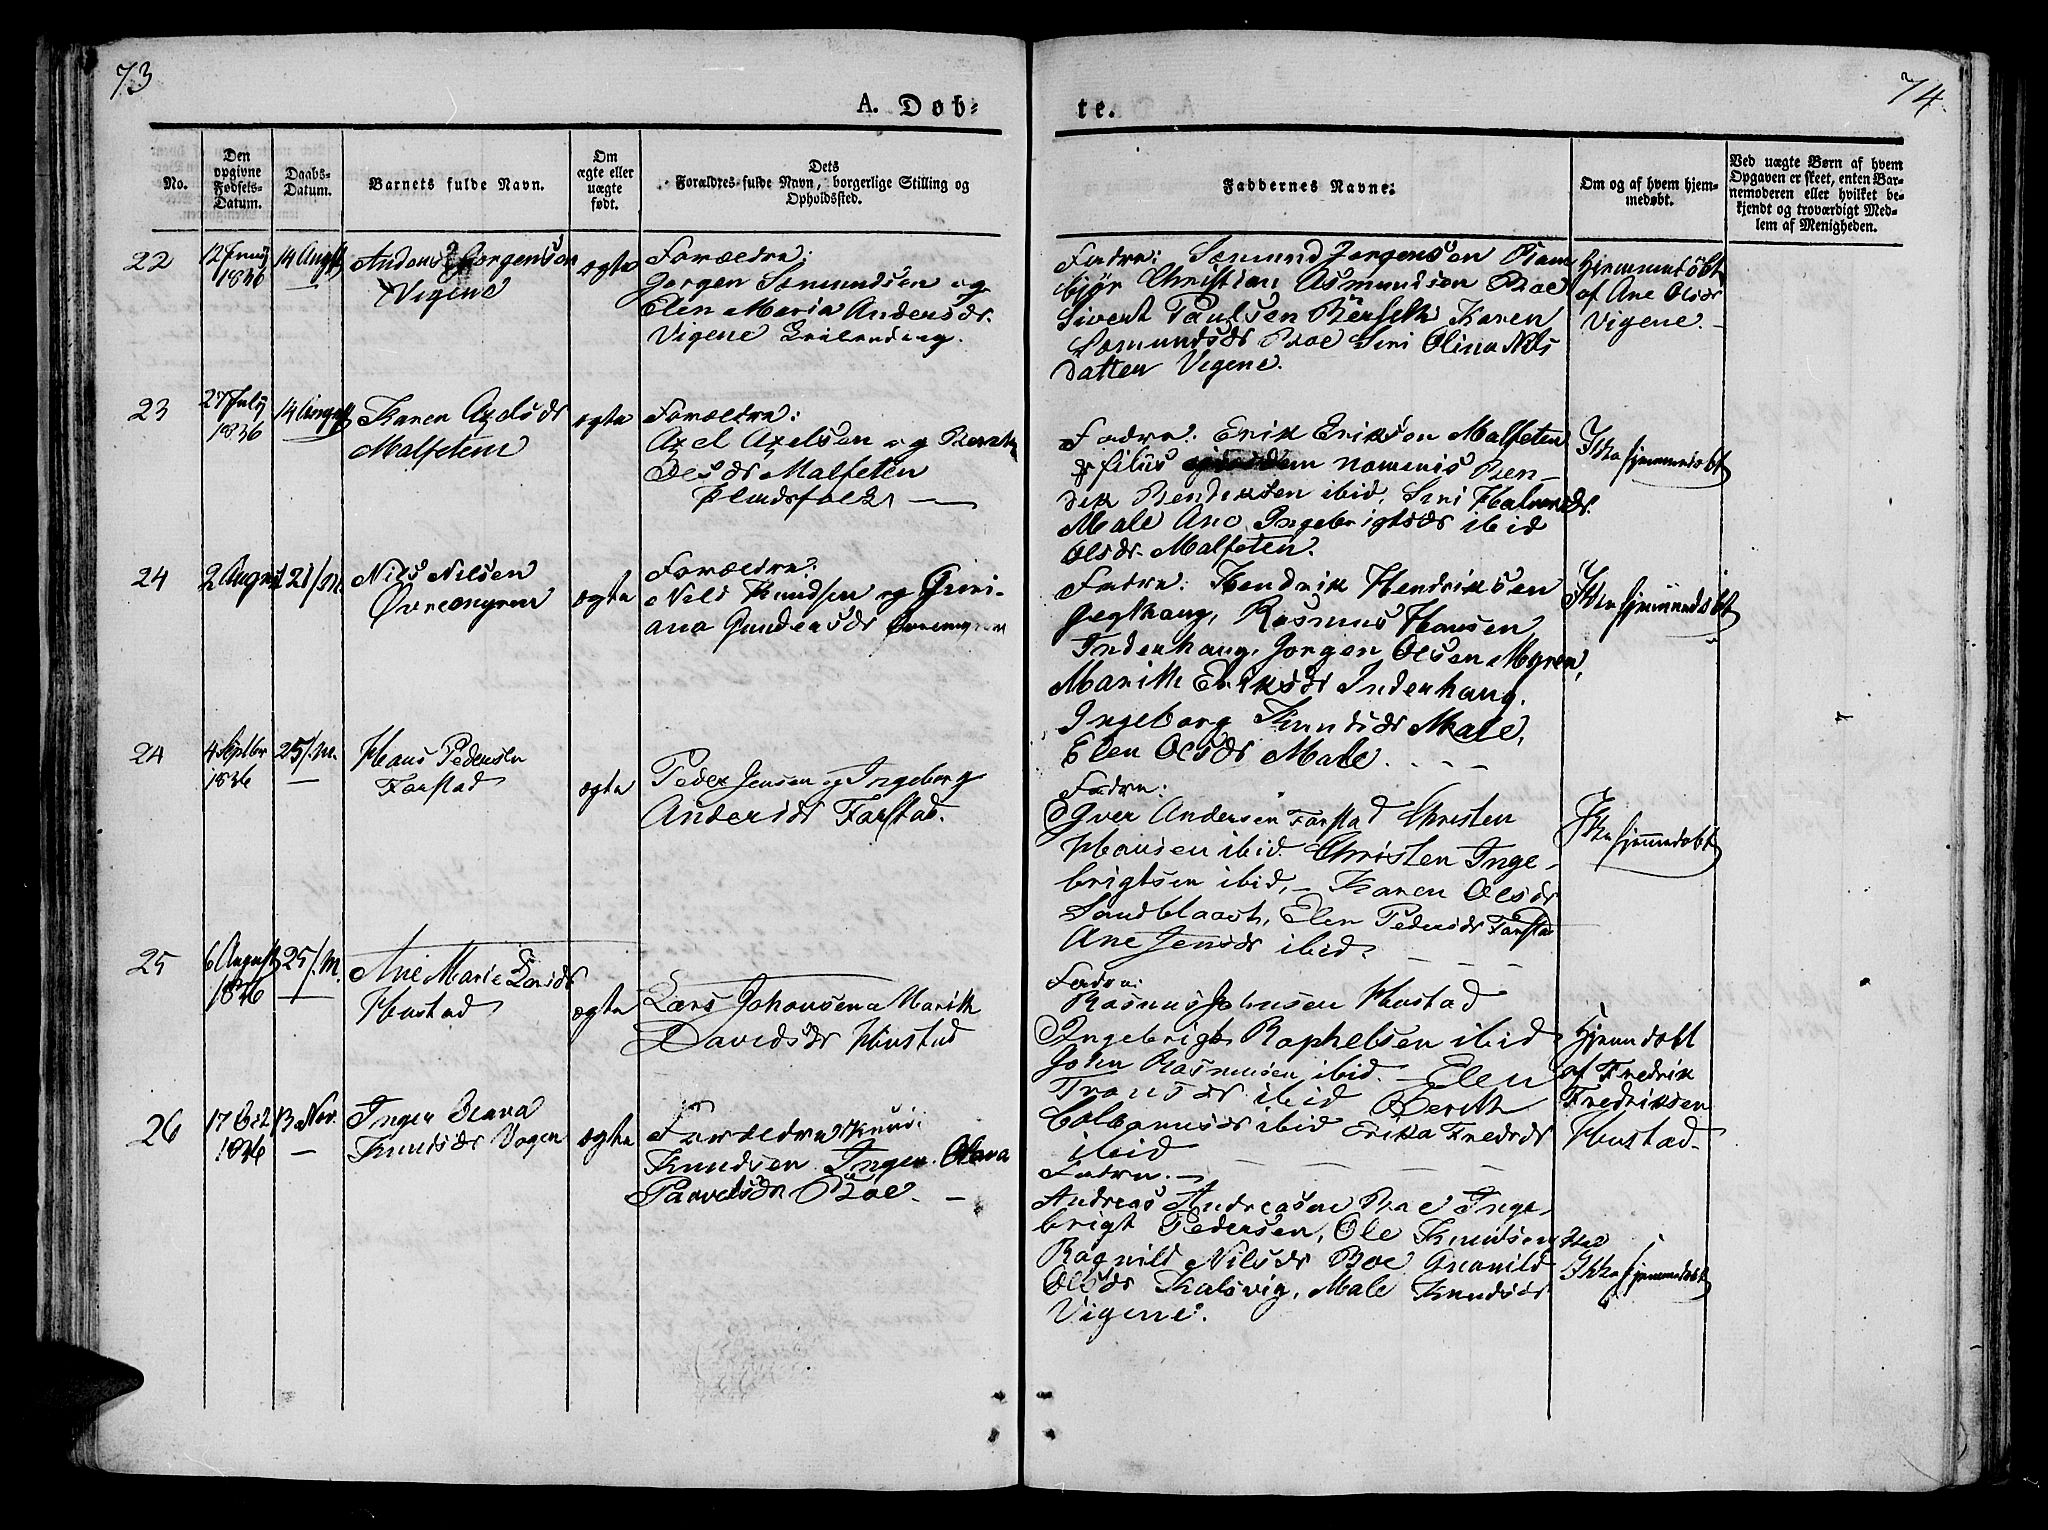 73
74
A. Døb-
te.
No.
Den opgivne Fødsels-Datum.
Daabs-Datum.
Barnets fulde Navn.
Om ægte eller uægte født.
Dets Forældres fulde Navn, borgerlige Stilling og Opholdssted.
Faddernes Navne.
Om og af hvem hjemmedøbt.
Ved uægte Børn af hvem Opgaven er skeet, enten Barnemoderen eller hvilket bekjendt og troværdigt Medlem af Menigheden.
22
1836
14 August
Jorgensøn
Vigene
ægte
Forældre:
Jorgen Somundsen og
Elen Maria Andersdr.
Vigene
Fadre: Somund Jorgensen
Christian Asmundsen Boe
Sivert Paulsen Karen
Somundsdr Boe Siri Olina Nils
datter Vigene.
Hjemmedöbt
af Ane Olsdr
Vigene.
23
27 July
1836
14 August
Karen Axelsdr
Malfeten
ægte
Forældre:
Axel Axelsen og Bereth
Olsdr Malfeten
Pladsfolk
Fadre: Erik Eriksen Malfeten
filius nomenis Ben-
dik Bendiksen ibid, Siri Halvordr.
Male Ane Ingebrigtsdr ibid
Olsdr. Malfeten.
Ikke hjemmedøbt
24
2 August
21/m.
Nils Nilsen
Øvremyren
ægte
Forældre:
Nils Knudsen og Guri-
ana Gundersdr Øvremyren
Fadre: Hendrik Hendriksen
Rasmus Hansen
Inderhaug, Jorgen Olsen Myren,
Marith Eriksdr Inderhaug.
Ingeborg Knudsdr Male,
Elen Olsdr Male.
Ikke hjemmedøbt
24
4 Septbr
1836
25/m.
Hans Pedersen
Farstad
ægte
Peder Jensen og Ingeborg
Andersdr Farstad.
Fadre:
Iver Andersen Farstad Christen
Hansen ibid Christen Inge-
brigtsen ibid, Karen Olsdr
Sandblaast, Elen Pedersdr Farstad
Ane Jensdr ibid.
Ikke hjemmedøbt
25
6 August
1836
25/m.
Ane Marie Larsdr
Hustad
ægte
Lars Johansen Marith
Davidsdr Hustad
Fadre:
Rasmus Johnsen Hustad
Ingebrigt Raphelsen ibid
John Rasmusen ibid. Elen
ibid Berith
ibid Erika Fredrdr
ibid
Hjemmdøbt
af Fredrik
Fredriksen
Hustad
26
17 Oct
1836
13 Nov.
Inger Olava
Knudsdr Vagen
ægte
Forældre Knud
Knudsen Inger Olava
Paavelsdr Boe.
Fadre.
Andreas Andreasen Boe Inge-
brigt Pedersen, Ole Knudsen
Ragnild Nilsdr Boe Gunnild
Olsdr Kalsvig, Male Knudsdr
Vigene.
Ikke hjemmedøbt